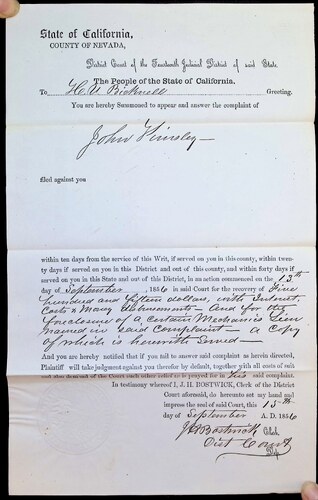 State of California,
COUNTY OF NEVADA,
District Court of the Fourteenth Judicial District of said State.
The People of the State of California.
To H. U Bicknell Greeting.
You are hereby Summoned to appear and answer the complaint of
John Kinsly
filed against you
within ten days from the service of this Writ, if served on you in this county, within twen-
ty days if served on you in this District and out of this county, and within forty days if
served on you in this State and out of this District, in an action commenced on the 13th
day of September, 1856 in said Court for the recovery of Five
hundred and fifteen dollars, with Interest,
Costs & Money disbursements - And for the
foreclosure of a certain Mechanics Lien
named in said Complaint - a Copy
of which is herewith Served -
And you are hereby notified that if you fail to answer said complaint as herein directed,
Plaintiff will take judgment against you therefor by default, together with all costs of suit
and also demand of the Court such other relief as is prayed for in his said complaint.
In testimony whereof I, J. H. BOSTWICK, Clerk of the District
Court aforesaid, do hereunto set my hand and
impress the seal of said Court, this 15th
day of September A. D. 1856
J H Bostwick Clerk,
Dist Court